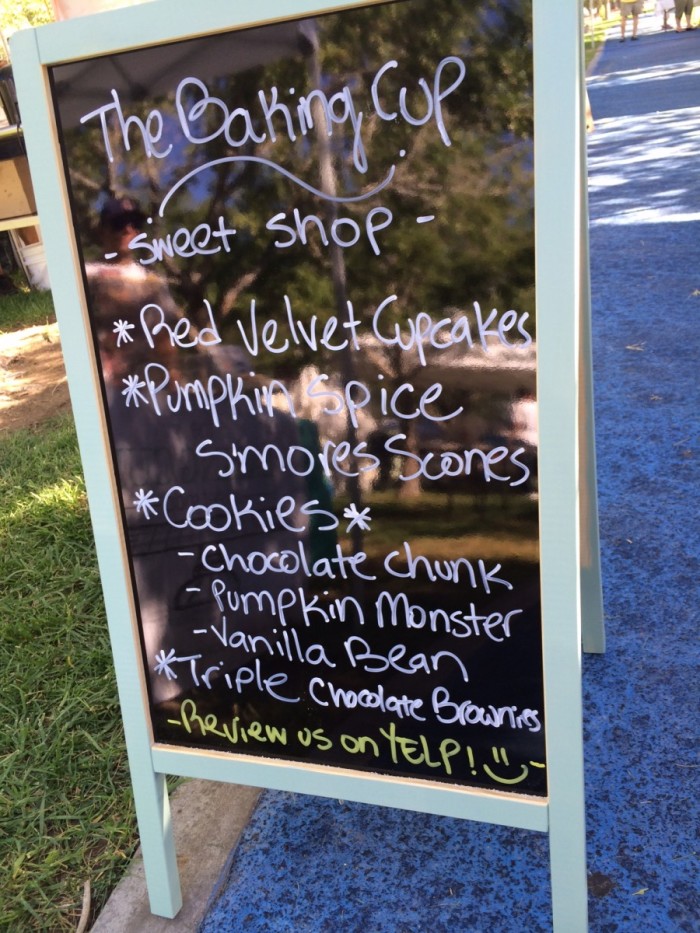 The Baking Cup
- Sweet Shop -
*Red Velvet Cupcakes
*Pumpkin Spice
S'mores Scones
*Cookies*
-Chocolate Chunk
-Pumpkin Monster
-Vanilla Bean
*Triple Chocolate Brownies
-Review us on YELP! -